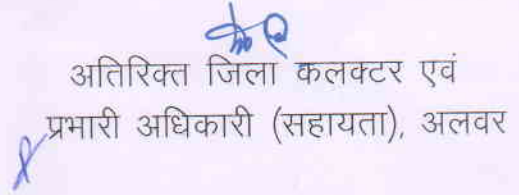 अतिरिक्त जिला कलक्टर एवं
प्रभारी अधिकारी (सहायता), अलवर